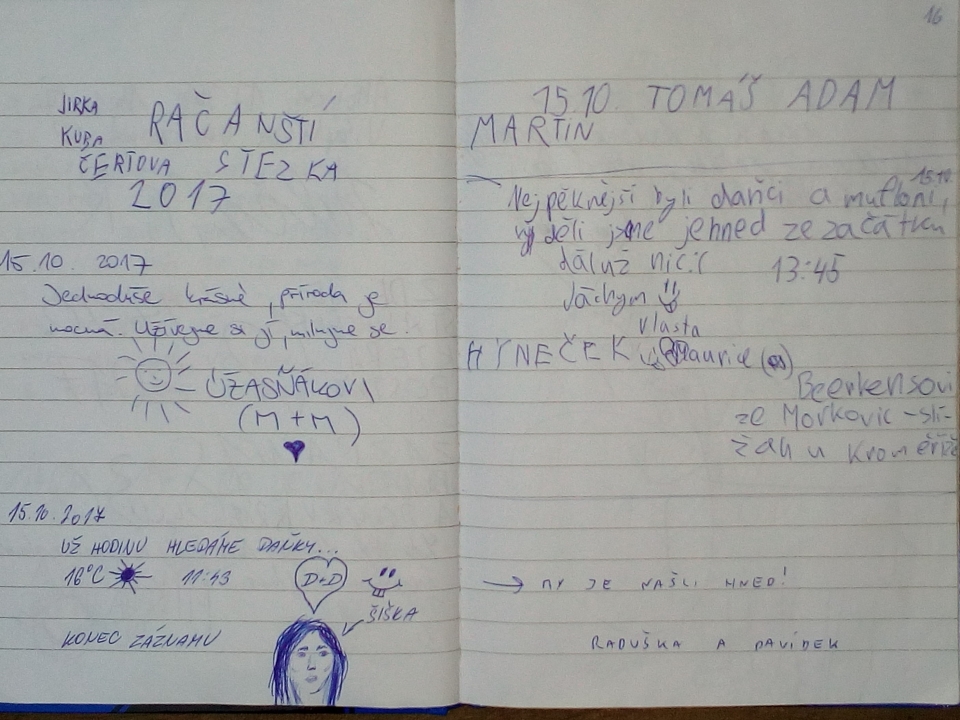 JIRKA
KUBA
RAČANŠTÍ
ČERTOVA STEZKA
2017
15.10. 2017
Jednoduše krásné, příroda je
mocná. Užívejme si jí, milujme se!
ÚŽASŇÁKOVI
(M+M)
15.10.2017
UŽ HODINU HLEDÁME DAŇKY...
16°C 11:43
D+D
ŠIŠKA
KONEC ZÁZNAMU
16
15.10. TOMÁŠ ADAM
MARTIN
15.10
Nejpěknější byli daňci a mufloni,
vyděli jsme jehned ze začátku
dál už nic:(
13:45
Jáchym
Vlasta
HYNEČEK
Maurice
Beerkensovi
ze Morkovic-Slí-
žan u Kroměříže
→ MY JE NAŠLI HNED!
RADUŠKA A DAVÍDEK